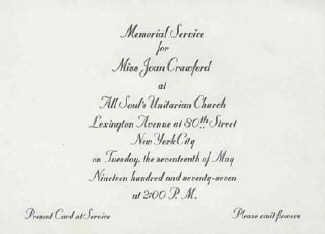 Memorial Service
for
Miss Joan Crawford
at
All Soul's Unitarian Church
Lexington Avenue at 80th Street
New York City
on Tuesday, the seventeenth of May
Nineteen hundred and seventy-seven
at 2:00 P. M.
Present Card at Service
Please omit flowers